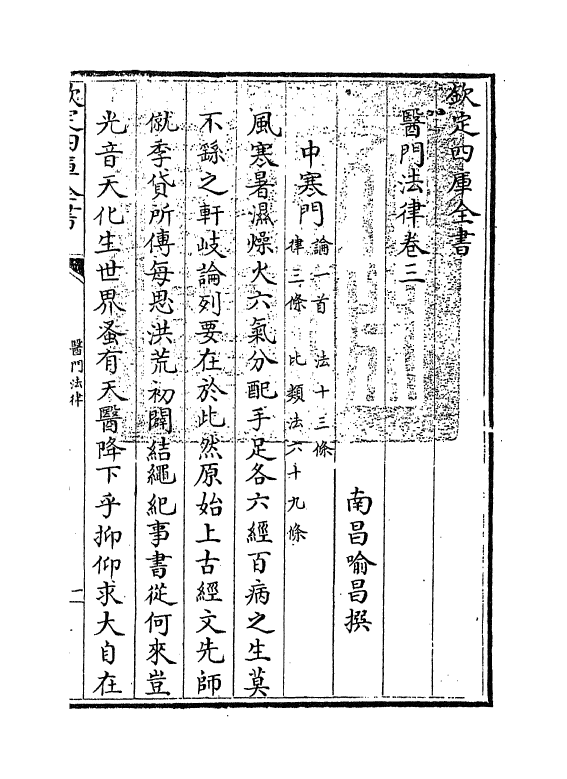 欽定四庫全書
醫門法律卷三
南昌喻昌撰
中寒門論一首 法十三條
律三條 比類法六十九條
風寒暑濕燥火六氣分配手足各六經百病之生莫
不繇之軒岐論列要在於此然原始上古經文先師
僦季貸所傳每思洪荒初闢結繩紀事書從何來豈
光音天化生世界蚤有天醫降下乎抑仰求大自在
欽定四庫全書
醫門法律
一